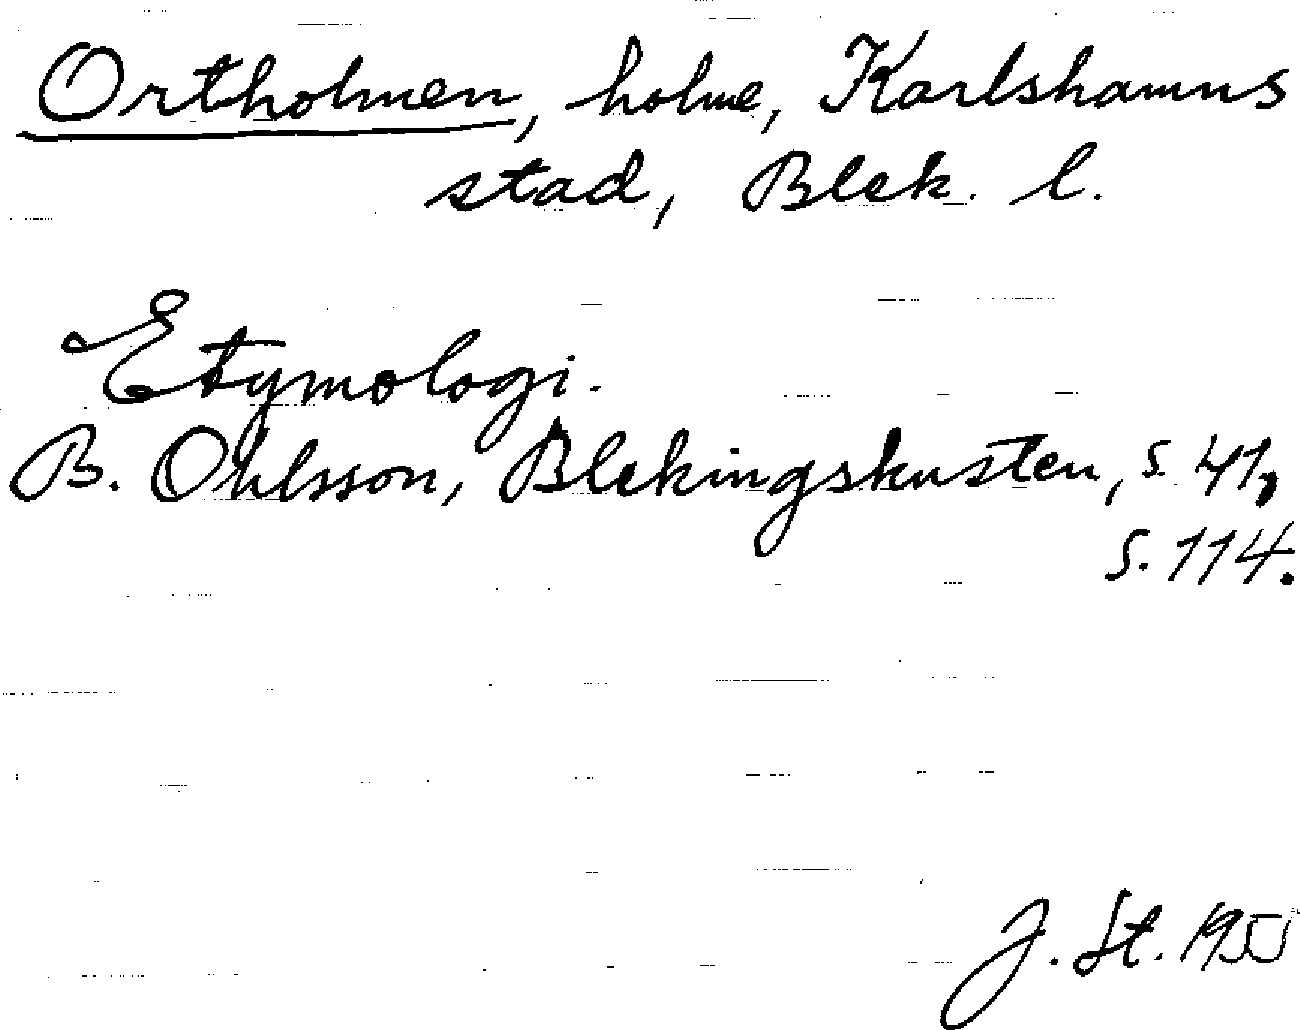 Ortholmen, holme, Karlshamns
stad, Blek. l.
Etymologi.
B. Ohlsson, Blekingskusten, s. 41,
s. 114.
J. St. 1955